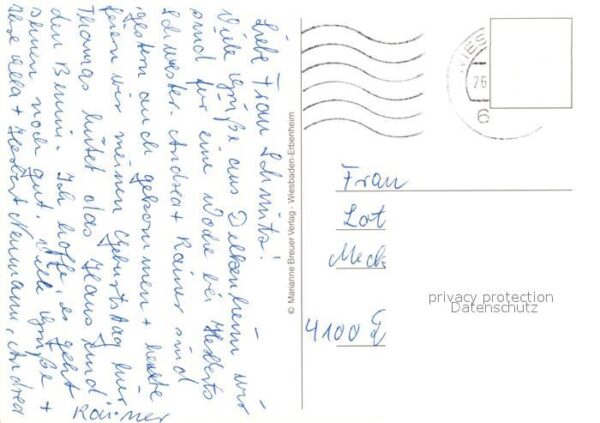 Liebe Frau Schmitz!
Viele Grüße aus Delkenheim wir
sind für eine Woche bei Herberts
Schwester. Andrea + Rainer sind
gestern auch gekommen + heute
feiern wir meinen Geburtstag hier
Thomas hütet das Haus und
den Benni. Ich hoffe, es geht
Ihnen noch gut. Viele Grüße
Ihre + Herbert Neumann, Andrea +
Rainer
© Marianne Breuer Verlag · Wiesbaden-Erbenheim
WIES
26
6
Frau
Lot
Meck
4100
privacy protection
Datenschutz